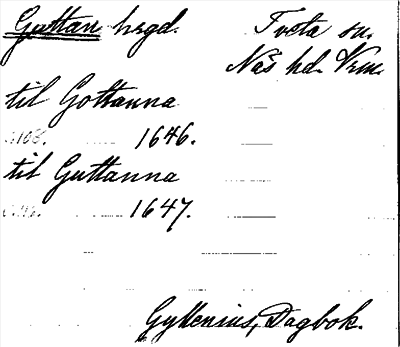 Guttan hrgd.
Tveta sn.
Näs hd. Vrm.
til Gottanna
s. 108. 1646.
til Guttanna
1647.
Gyllenius, Dagbok.